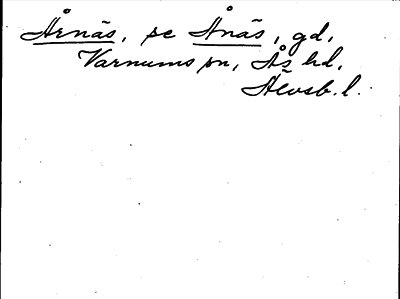 Årnäs, se Ånäs, gd,
Varnums sn, Ås hd,
Älvsb. l.